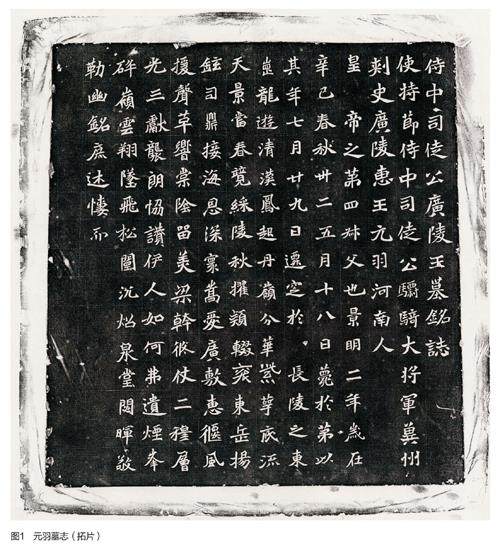 侍中司徒公廣陵王墓銘誌
使持節侍中司徒公驃騎大將軍冀州
刺史廣陵惠王元羽河南人
皇帝之第四叔父也景明二年歲在
辛巳春秋卅二五月十八日薨於第以
其年七月廿九日遷窆於長陵之東
崗龍遊清漢鳳起丹嶺分華紫萼底流
天景當春競綵陵秋擢穎輟袞東岳揚
鉉司鼎接海恩深褰嵩愛廣敷惠偃風
援聲革響棠陰留美梁幹筱仗二穆層
光三獻襲朗協讚伊人如何弗遺煙峯
碎嶺雲翔墜飛松闈沉炤泉堂閟暉敬
勒幽銘庶述悽而
图1 元羽墓志（拓片）